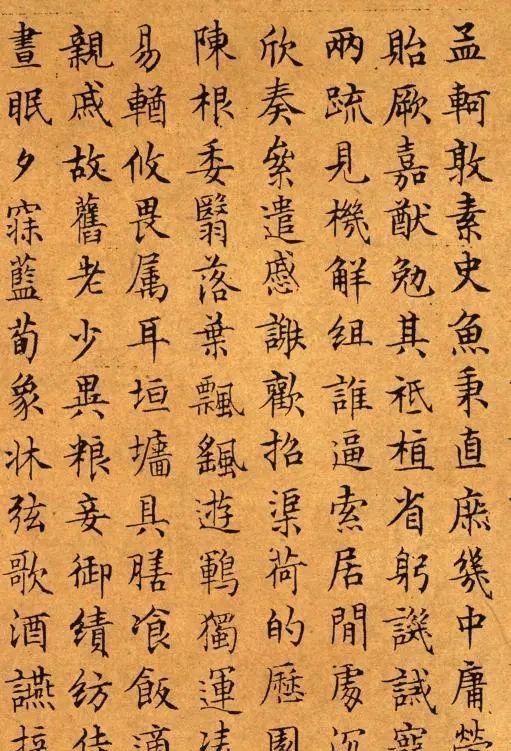 孟軻敦素史魚秉直庶幾中庸勞
貽厥嘉猷勉其祗植省躬譏誡寵
兩疏見機解組誰逼索居閒處沉
欣奏絫遣慼謝歡招渠荷的歷園
陳根委翳落葉飄颻遊鶤獨運凌
易輶攸畏属耳垣墻具膳飡飯適
親戚故舊老少異粮妾御績紡侍
晝眠夕寐藍荀象牀弦歌酒讌接